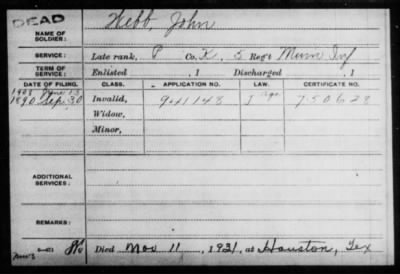 DEAD
Webb, John
NAME OF
SOLDIER:
SERVICE: Late rank, P Co. K, 5 Reg't Minn Inf
TERM OF
SERVICE: Enlisted , 1 Discharged , 1
DATE OF FILING. CLASS. APPLICATION NO. LAW. CERTIFICATE NO.
1908 June 13 Age
1890 Sep. 30 Invalid, 941148 J 750628
Widow,
Minor,
ADDITIONAL
SERVICES:
REMARKS:
Died Nov 11, 1921, at Houston, Tex